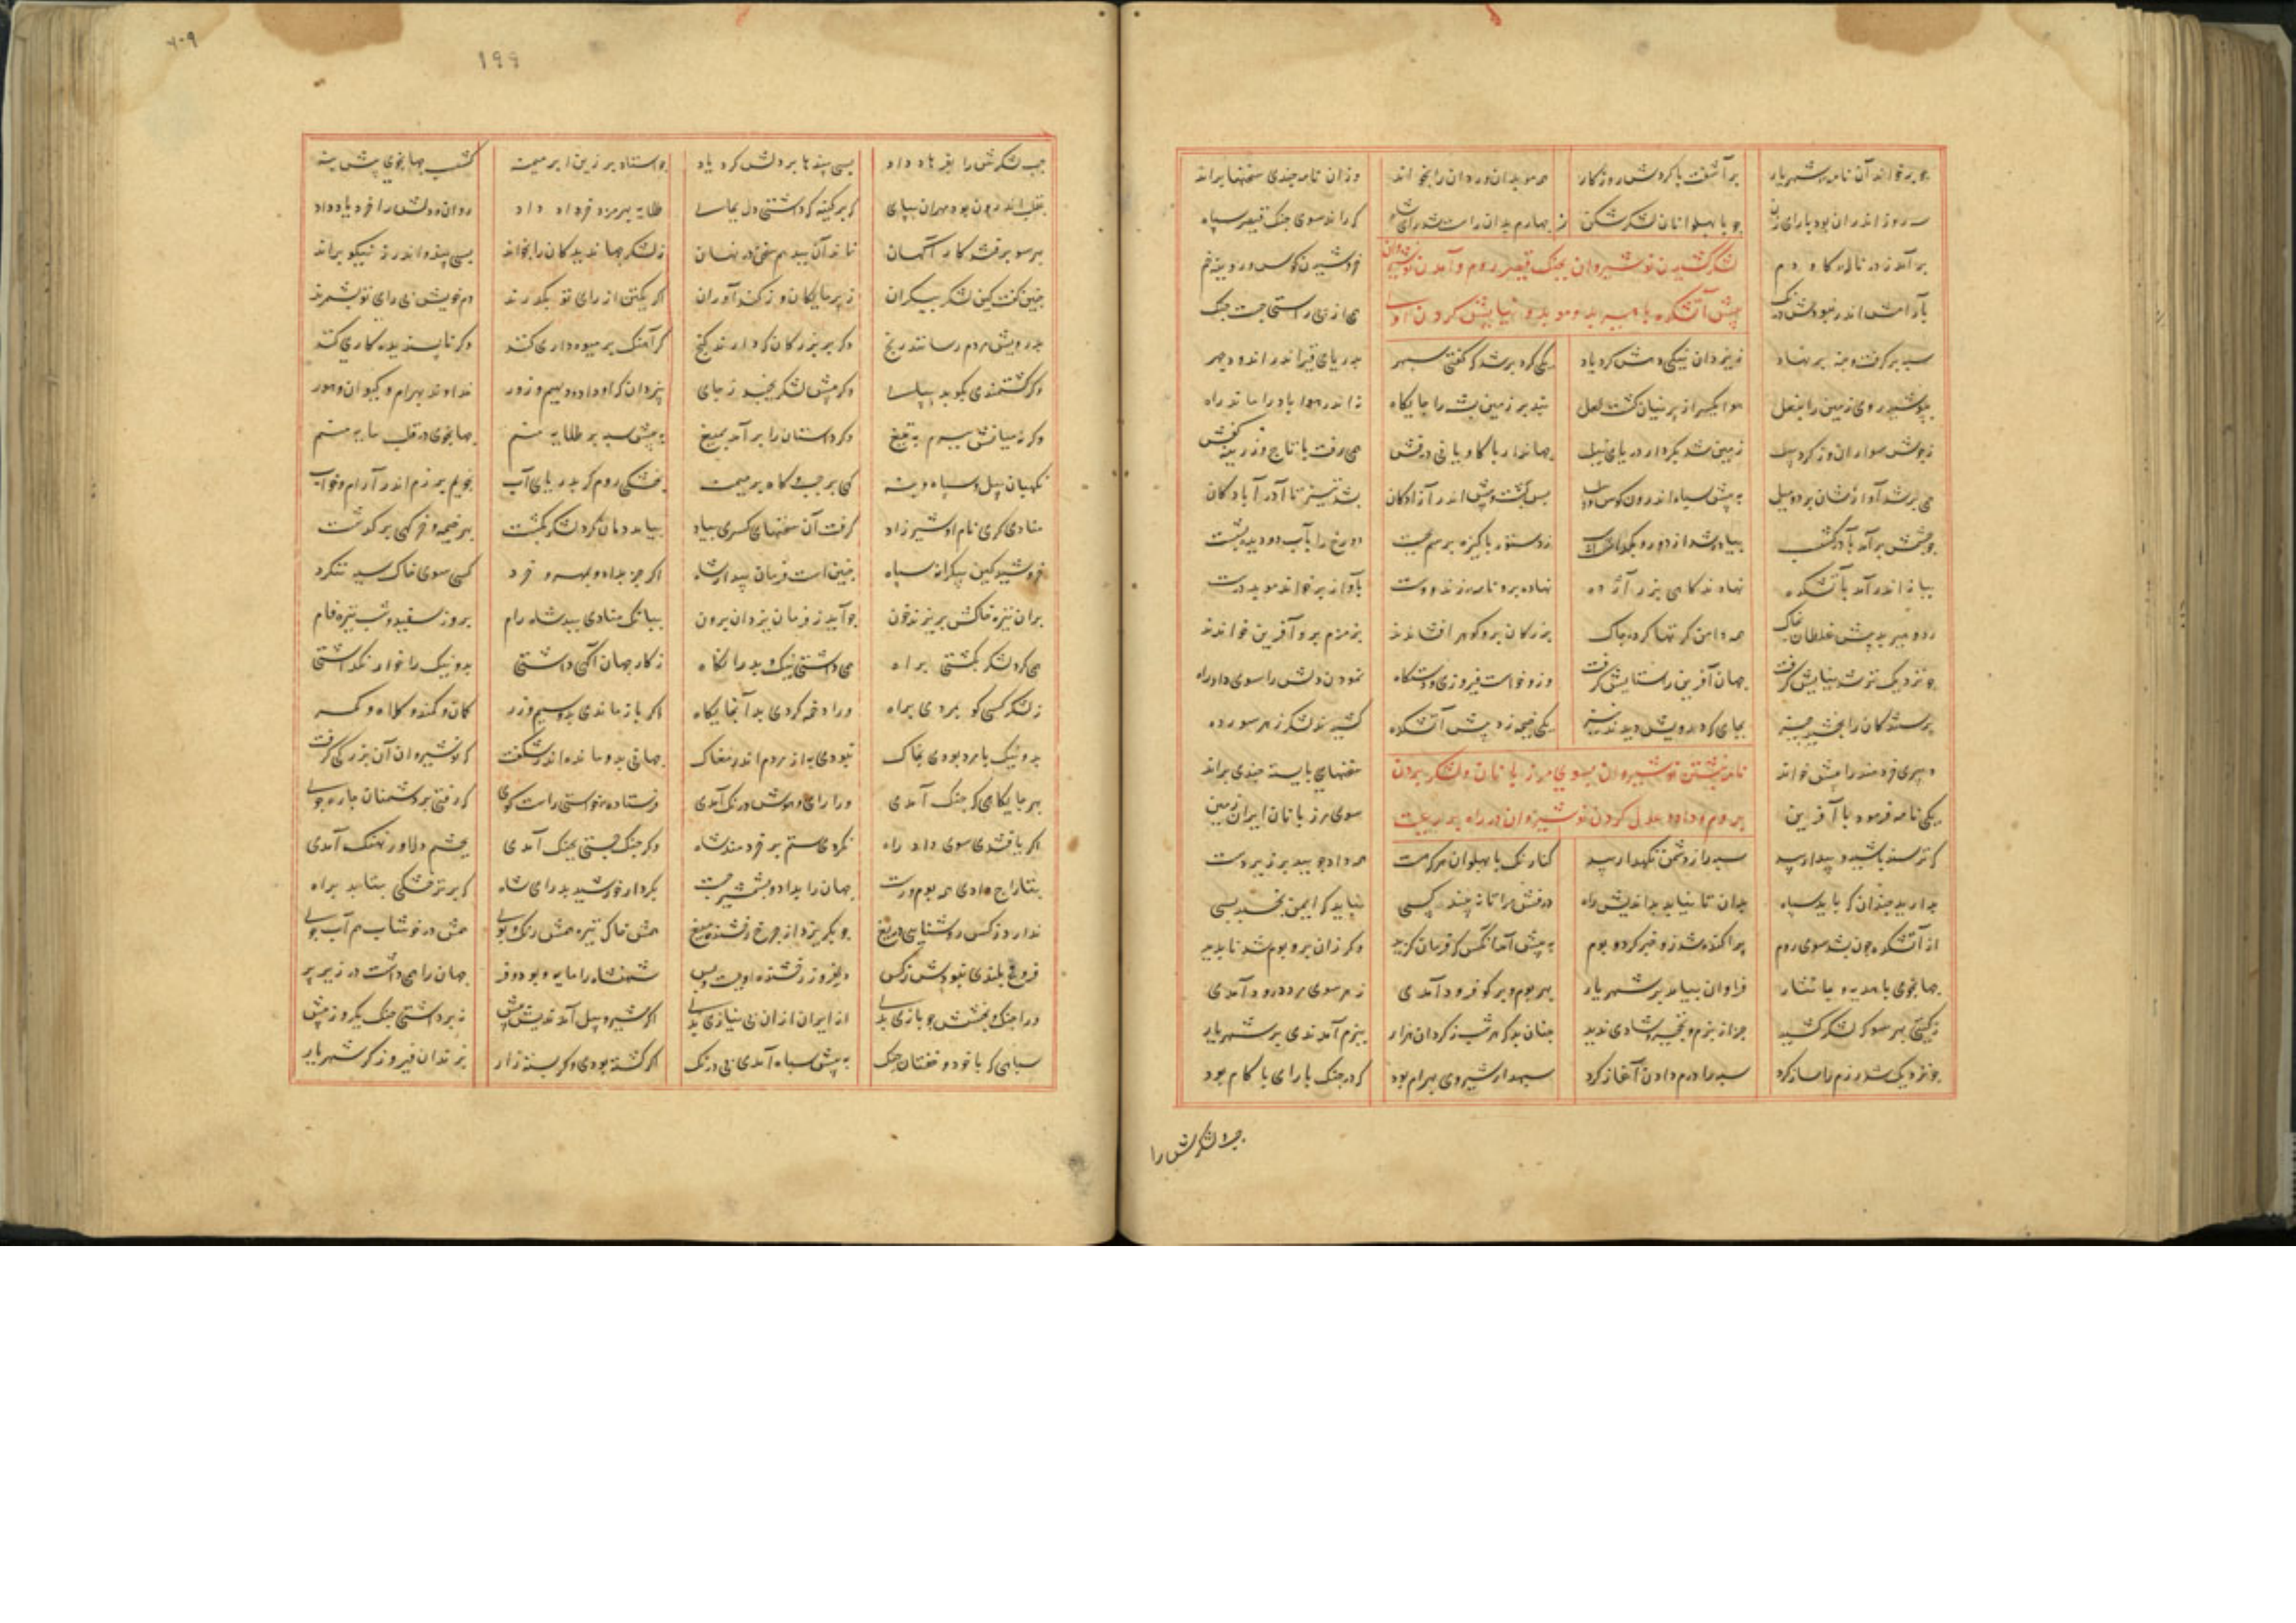 چو برخواند آن نامه را شهریار برآشفت با گردش روزگار همه موبدان و ردان را بخواند وزان نامه چندی سخنها براند
سه روز اندران بود با رای زن چو با پهلوانان لشکرشکن چهارم بدان راست شد رای شاه که راند سوی جنگ قیصر سپاه
برآمد ز در ناله گاو دم خروشیدن کوس و رویینه خم
لشکر کشیدن نوشیروان بجنگ قیصر روم و آمدن
بآرامش اندر نبودش درنگ همی از پی راستی جست جنگ
پیش آتشکده
سپه برگرفت و بنه برنهاد ز یزدان نیکی دهش کرد یاد یکی گرد برشد که گفتی سپهر بدریای قیر اندر اندود چهر
بپوشید روی زمین را بنعل هوا یکسر از پرنیان گشت لعل نبد بر زمین پشه را جایگاه نه اندر هوا باد را ماند راه
ز جوش سواران و از گرد پیل زمین شد بکردار دریای نیل جهاندار با کاویانی درفش همی رفت با تاج و زرینه کفش
همی برشد آوازشان بر دو میل به پیش سپاه اندرون کوس و پیل پس پشت و پیش اندر آزادگان بشد تیز تا آذرآبادگان
چو چشمش برآمد بآذرگشسب پیاده شد از دور و بگذاشت اسب ز دستور پاکیزه برسم بجست دو رخ را بآب دو دیده بشست
بیامد اندر آمد بآتشکده نهادند گاهی بزر آژده نهاده برو نامه زند و وست بآواز برخواند موبد درست
رد و هیربد پیش غلطان بخاک همه دامن کرتها کرده چاک بزرگان برو گوهر افشاندند بزمزم برو آفرین خواندند
چو نزدیکتر شد نیایش گرفت جهان آفرین را ستایش گرفت وزو خواست فیروزی و دستگاه نمودن دلش را سوی داد راه
پرستندگان را ببخشید چیز بجای که درویش دیدند نیز یکی خیمه زد پیش آتشکده کشیدند لشکر ز هر سو رده
دبیری خردمند را پیش خواند نامه نبشتن نوشیروان بسوی مرزبانان و لشکر بردن سخنهای بایسته چندی براند
یکی نامه فرمود با آفرین بروم و داد و عدل کردن نوشیروان در راه سوی مرزبانان ایران زمین
که ترسنده باشید و بیدار بید سپه را ز دشمن نگهدار بید کنارنگ با پهلوان هرکه هست همه داد جویید بر زیردست
بدارید چندان که باید سپاه بدان تا نیابد بداندیش راه درفش مرا تا نه بیند کسی نباید که ایمن بخسبد بسی
از آتشکده چون بشد سوی روم پراکنده شد زو خبر گرد بوم به پیش آمد آنکس که فرمان گزید وگر زان بر و بوم شد ناپدید
جهانجوی با هدیه و با نثار فراوان بیامد بر شهریار بهر بوم و بر کو فرود آمدی ز هر سوی بر ده درود آمدی
ز گیتی بهر سو که لشکر کشید جز از بزم و شادی ندید چنان بد که هر شب ز گردان هزار ببزم آمدندی بر شهریار
چو نزدیک شد رزم را ساز کرد سپه را درم دادن آغاز کرد سپهدار شیروی بهرام بود که در جنگ با رای با کام بود
چپ لشکرش را
چپ لشکرش را بفرهاد داد بسی پندها بر دلش کرد یاد چو استاد بر زین ابر میمنه گشسب جهانجوی پیش بنه
بقلب اندرون بود مهران بپای که بر کینه گه داشتی دل بجای طلایه بهرمزد خراد داد روان و دلش را خرد یاد داد
بهر سو برفتند کارآگهان نماند آن بد هم سخن در نهان ز لشکر جهاندیدگان را بخواند بسی پند و اندرز نیکو براند
چنین گفت کین لشکر بیکران ز پرمایگان وز کندآوران اگر یکتن از رای تو بگذرند دم خویش بی رای تو بشمرند
بدرویش مردم رسانند رنج وگر بر بزرگان که دارند گنج گر آهنگ بر میوه داری کند وگر ناپسندیده کاری کند
وگر کشتمندی بکوبد بپای وگر پیش لشکر بجنبد ز جای بیزدان که او داد دیهیم و زور خداوند بهرام و کیوان و هور
که در میانش ببرم به تیغ وگر داستان را برآمد بمیغ به پیش سپه بر طلایه منم جهانجوی در قلب مایه منم
نگهبان پیل و سپاه و بنه گهی بر چپ و گاه بر میمنه بخشکی روم گر بدریای آب نجویم برزم اندر آرام و خواب
منادی گری نام او شیرزاد گرفت آن سخنهای کسری بیاد بیامد دمان گرد لشکر بگشت بهر خیمه و خرگهی برگذشت
خروشید کین بیکرانه سپاه چنین است فرمان بیدار شاه اگر جز بداد و بمهر و خرد کسی سوی خاک سیه بنگرد
بران تیره خاکش بریزند خون چو آید ز فرمان یزدان برون ببانگ منادی نبد شاه رام بروز سفید و شب تیره فام
همی گرد لشکر بگشتی براه همی داشتی نیک و بد را نگاه ز کار جهان آگهی داشتی بد و نیک را خوار نگذاشتی
ز لشکر کسی کو بمردی براه ورا دخمه کردی بدان جایگاه اگر باز ماندی بدو سیم و زر کمان و کمند و کلاه و کمر
بد و نیک با مرده بودی بخاک نبودی به از مردم اندر مغاک جهانی بدو مانده اندر شگفت که نوشیروان آن بزرگی گرفت
بهر جایگاهی که جنگ آمدی ورا رای و هوش و درنگ آمدی فرستاده خواستی راست گوی که رفتی بر دشمنان چاره جوی
اگر یافتندی سوی داد راه نکردی ستم بر خردمند شاه وگر جنگ جستی بجنگ آمدی بخشم دلاور نهنگ آمدی
بتاراج دادی همه بوم و رست جهان را بداد و بشمشیر جست بکردار خورشید بد رای شاه که بر تر و خشکی بتابد براه
ندارد ز کس روشنایی دریغ چو بگریزد از چرخ رخشنده میغ همش خاک تیره همش رنگ و بوی همش در خوشاب هم آب جوی
فروغ بلندی نبودش ز کس دلفروز و رخشنده او بود و بس شهنشاه را مایه و بود و فر جهان را همی داشت در زیر پر
ورا جنگ و بخشش چو بازی بدی از ایران ازان بی نیازی بدی اگر شیر و پیل آمدندیش پیش نه برداشتی جنگ یکروز بیش
سپاهی که با خود و خفتان جنگ به پیش سپاه آمدی بی درنگ اگر کشته بودی وگر بسته زار بزندان فیروزگر شهریار